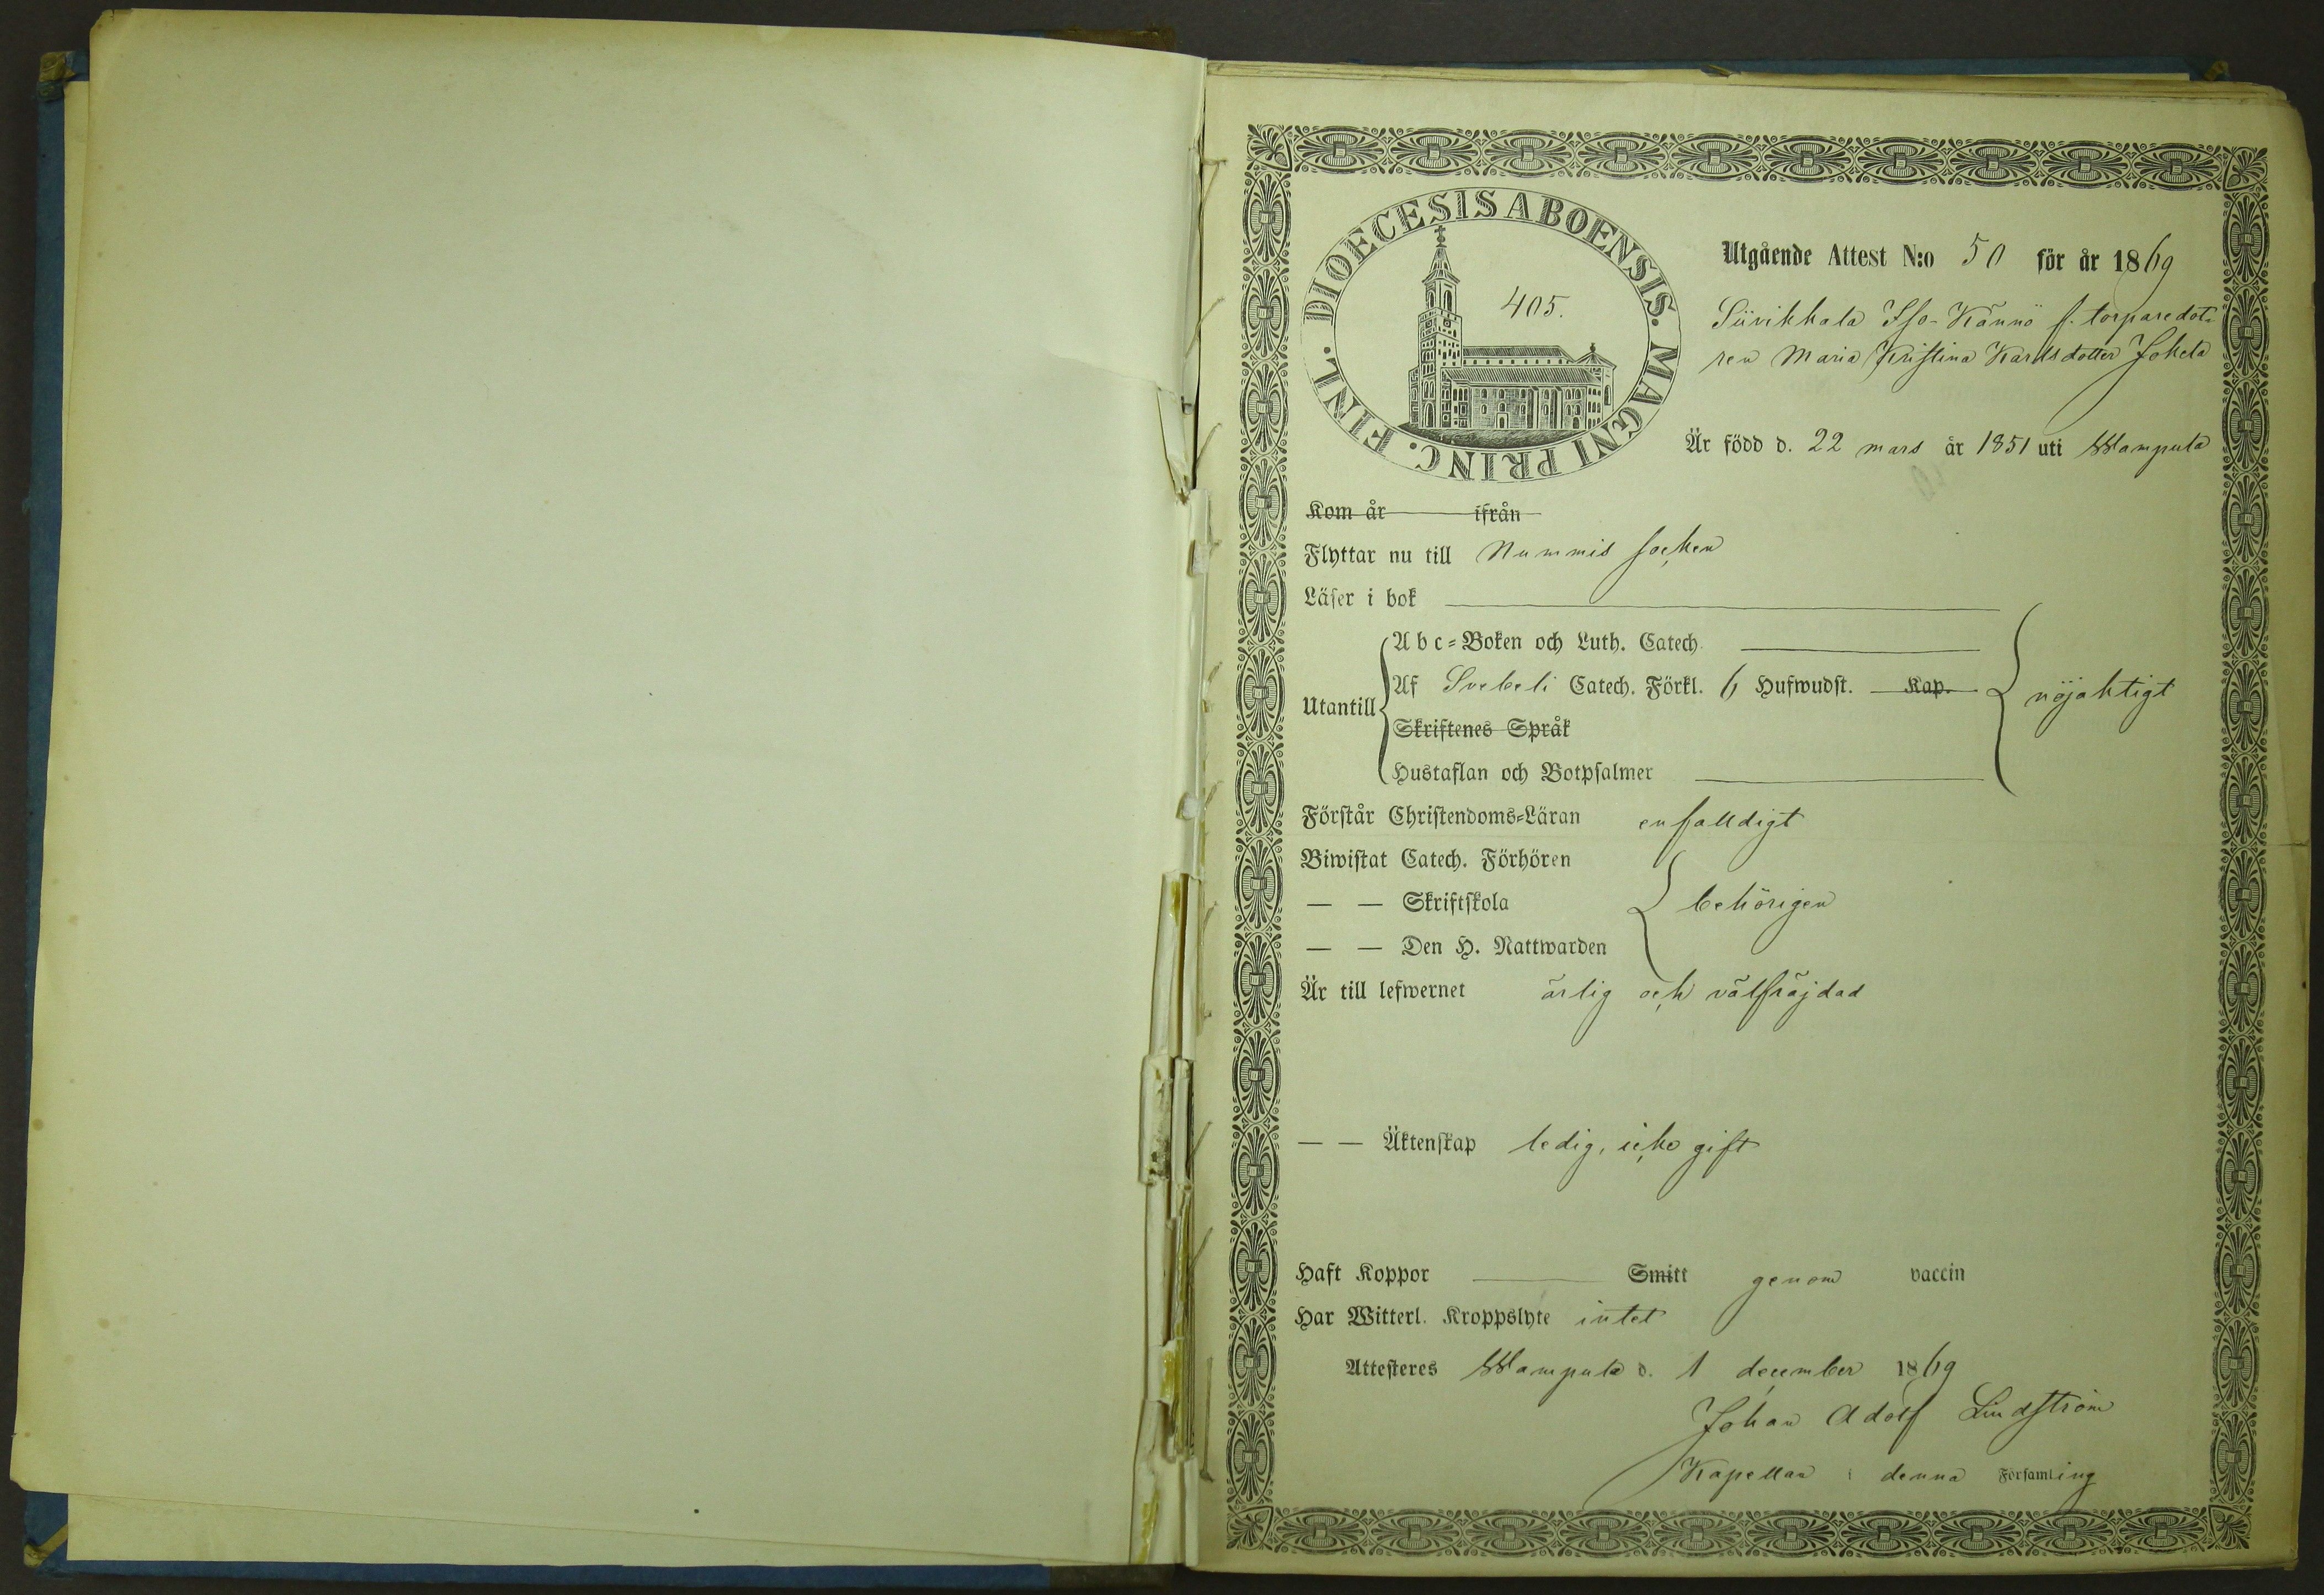 DIOECESIS ABOENSIS. MAGNI PRINC. FINL.
405.
Utgående Attest N:o 50 för år 1869
Siivikkala Iso-Kännö f. torparedot-
ren Maria Kristina Karlsdotter Jokela
Är född d. 22 mars år 1851 uti Wampula
Kom år ifrån
Flyttar nu till Nummis socken
Läser i bok
Abc-Boken och Luth. Catech.
Utantill Af Svebeli Catech. Förkl. 6 Hufwudst. Kap. nöjaktigt
Skriftenes Språk
Hustaflan och Botpsalmer
Förstår Christendoms-Läran enfalldigt
Biwistat Catech. Förhören
— — Skriftskola behörigen
— — Den H. Nattwarden
Är till lefwernet ärlig och välfräjdad
— — Äktenskap ledig, icke gift
Haft Koppor Smitt genom vaccin
Har Witterl. Kroppslyte intet
Attesteres Wampula d. 1 december 1869
Johan Adolf Lindström
Kapellan i denna Församling